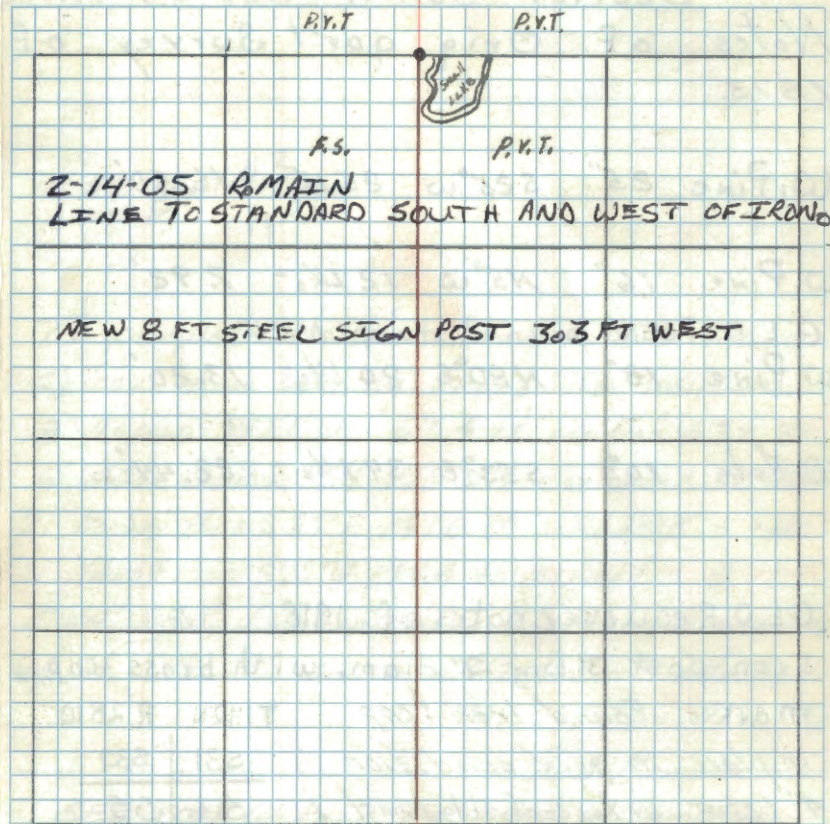 P.V.T P.V.T.
Small
Lake
F.S. P.V.T.
2-14-05 R.MAIN
LINE TO STANDARD SOUTH AND WEST OF IRON.
NEW 8 FT STEEL SIGN POST 3.3 FT WEST